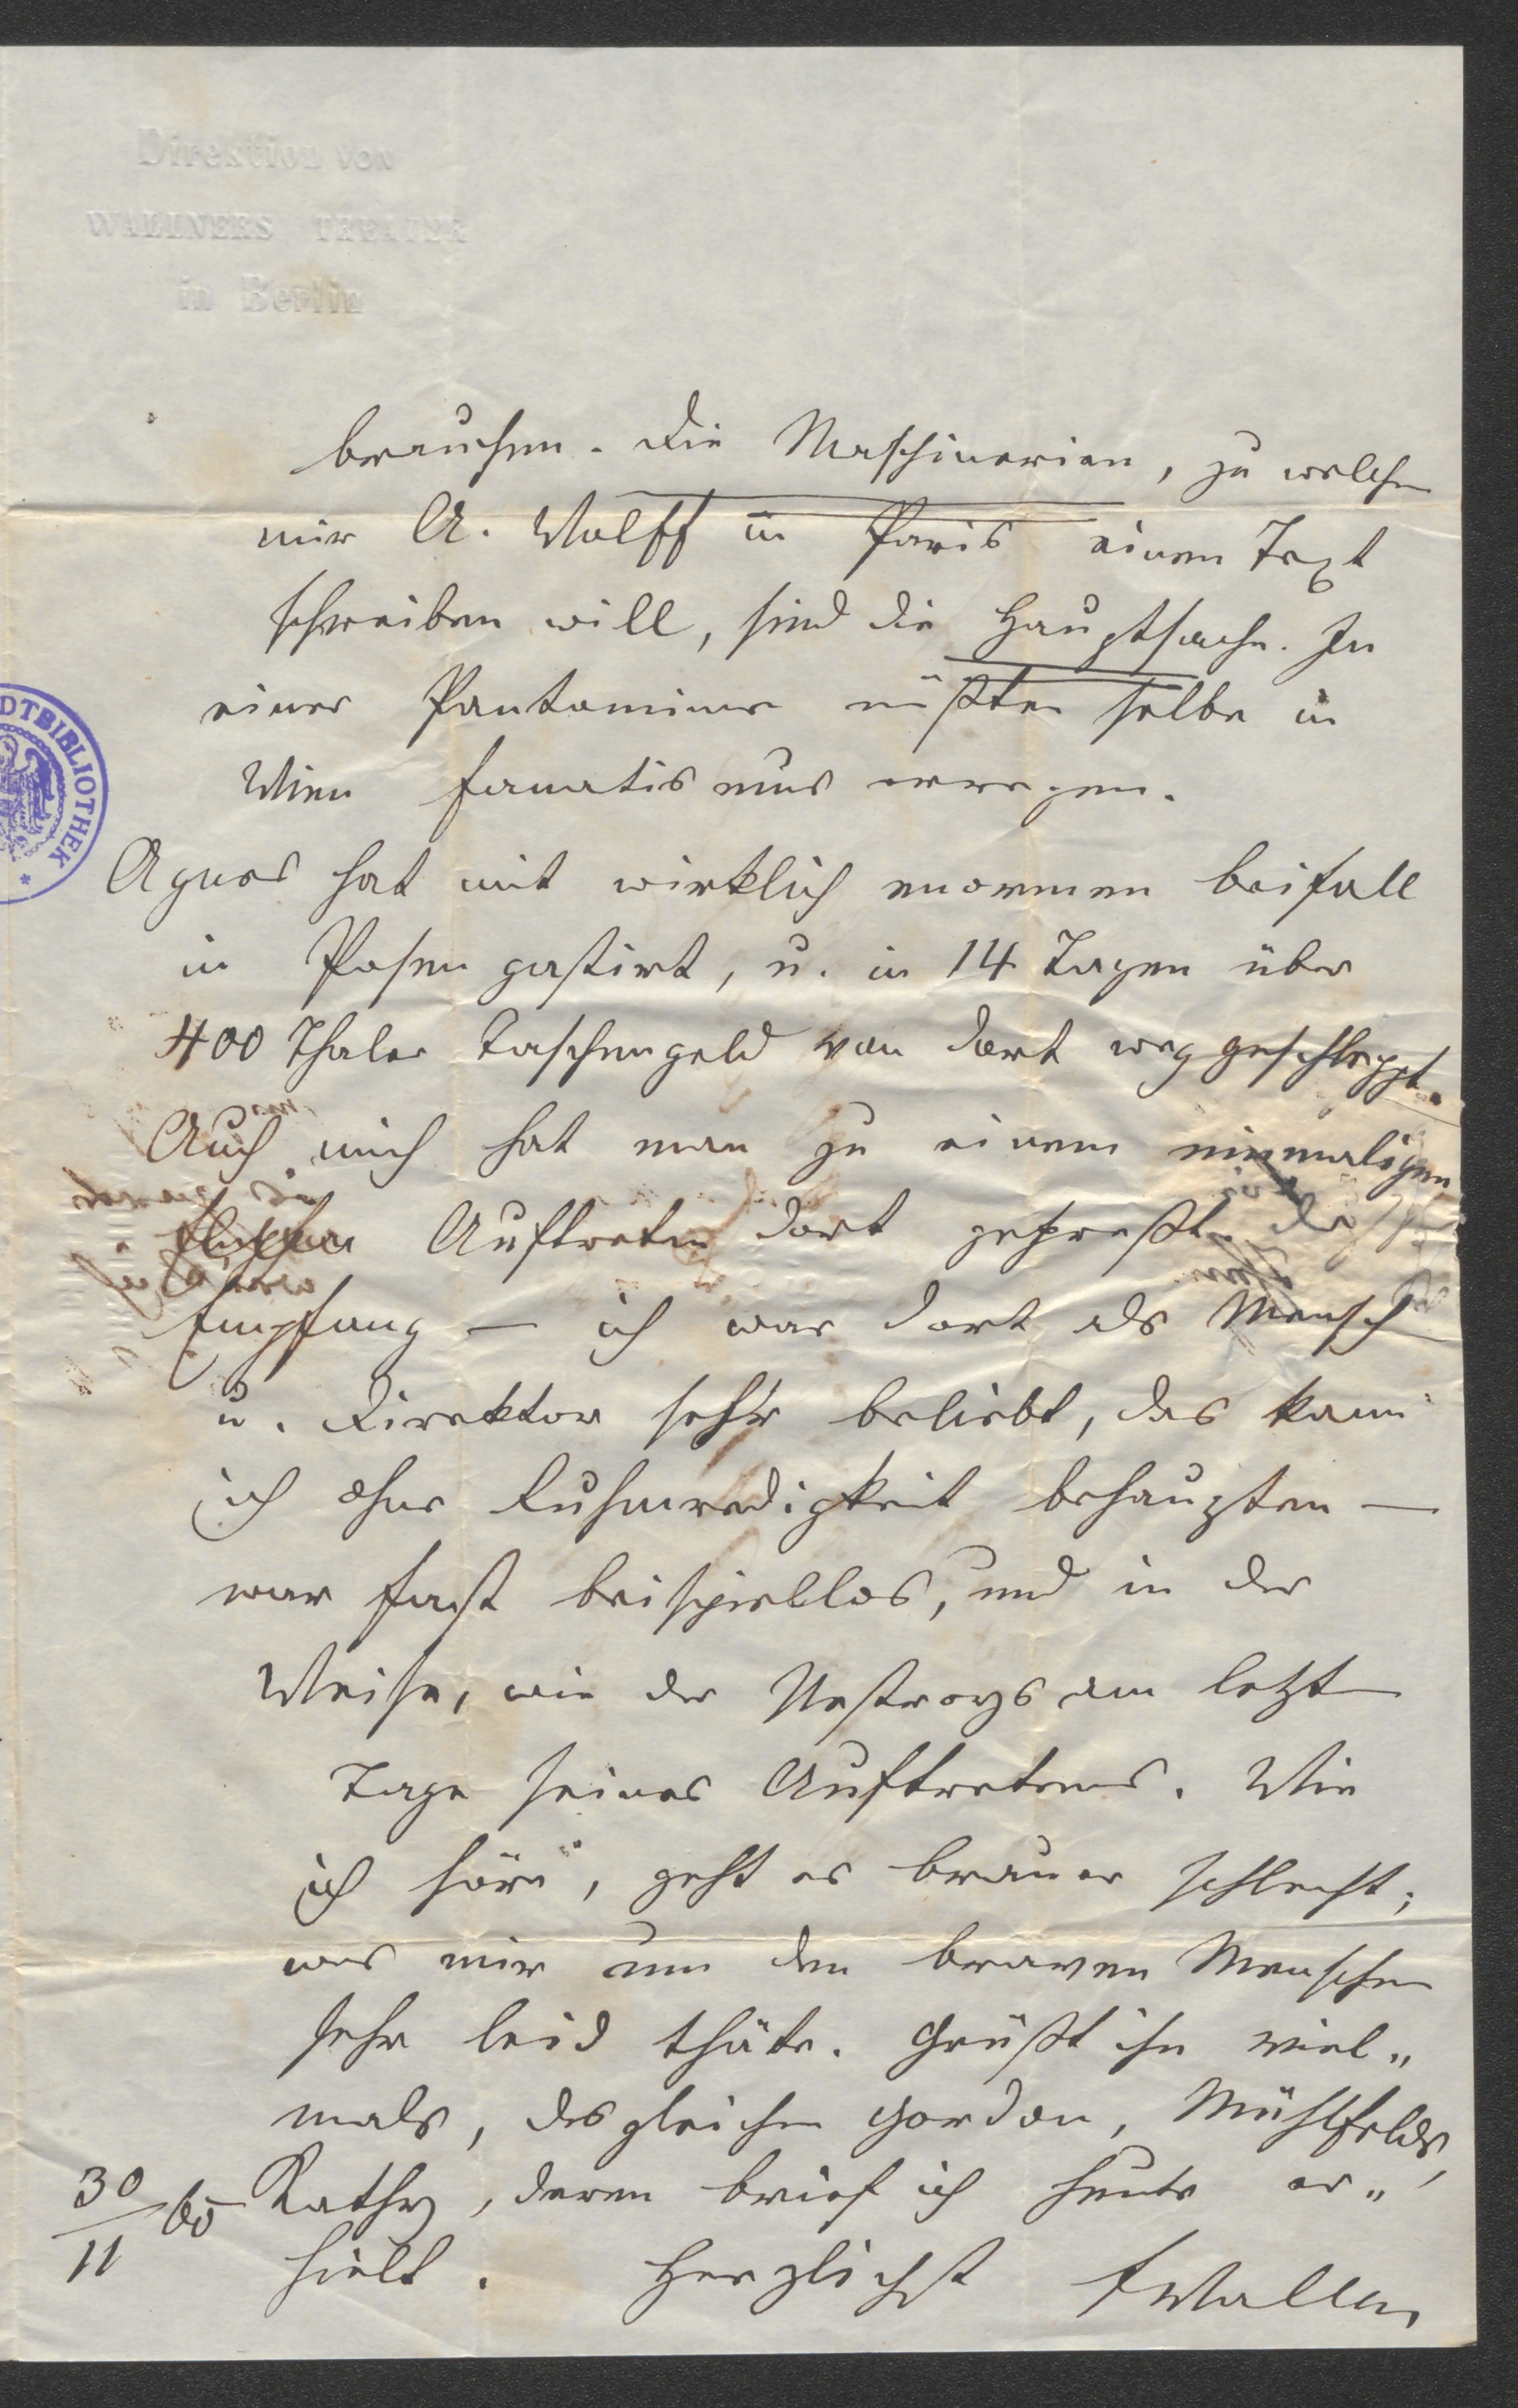 Direktion von
WALLNERS THEATER
in Berlin
brauchen. Die Maschinerien, zu welchen
mir A. Wolff in Paris einen Text
schreiben will, sind die Hauptsache. In
einer Pantomime müßten selbe in
Wien Fanatismus erregen.
DTBIBLIOTHEK
Agnes hat mit wirklich enormen Beifall
in Posen gastirt, u. in 14 Tagen über
400 Thaler Taschengeld von dort weg geschleppt.
Auch mich hat man zu einem einmaligen
Auftreten dort gepreßt. Der
Empfang — ich war dort als Mensch
u. Direktor sehr beliebt, das kann
ich ohne Ruhmredigkeit behaupten —
war fast beispiellos, und in der
Weise, wie der Nestroys am letzten
Tage seines Auftretens. Wie
ich höre, geht es Brauer schlecht;
was mir um den braven Menschen
sehr leid thäte. Grüßt ihn viel„
mals, desgleichen Gordon, Mühlfelds,
Kathy, deren Brief ich heute er„
hielt. Herzlichst FWallner
30/11 60